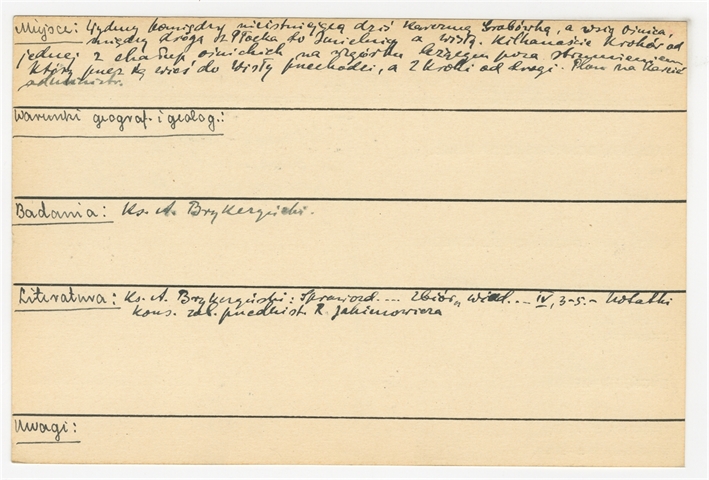 Miejsce: Wydmy pomiędzy nieistniejącą dziś karczmą Grabówką, a wsią Ośnica,
między drogą z Płocka do Imielnicy a Wisłą. Kilkanaście kroków od
jednej z chałup ośnickich na wzgórku leżącym poza strumieniem
który przez tę wieś do Wisły przechodzi, a 2 kroki od drogi. Plan na karcie
Warunki geograf. i geolog.:
Badania: Ks. A. Brykczyński.
Literatura: Ks. A. Brykczyński: Sprawozd.... Zbiór „ wiad.... IV, 3-5. - Notatki
kons. zab. przedhist. R. Jakimowicza
Uwagi: